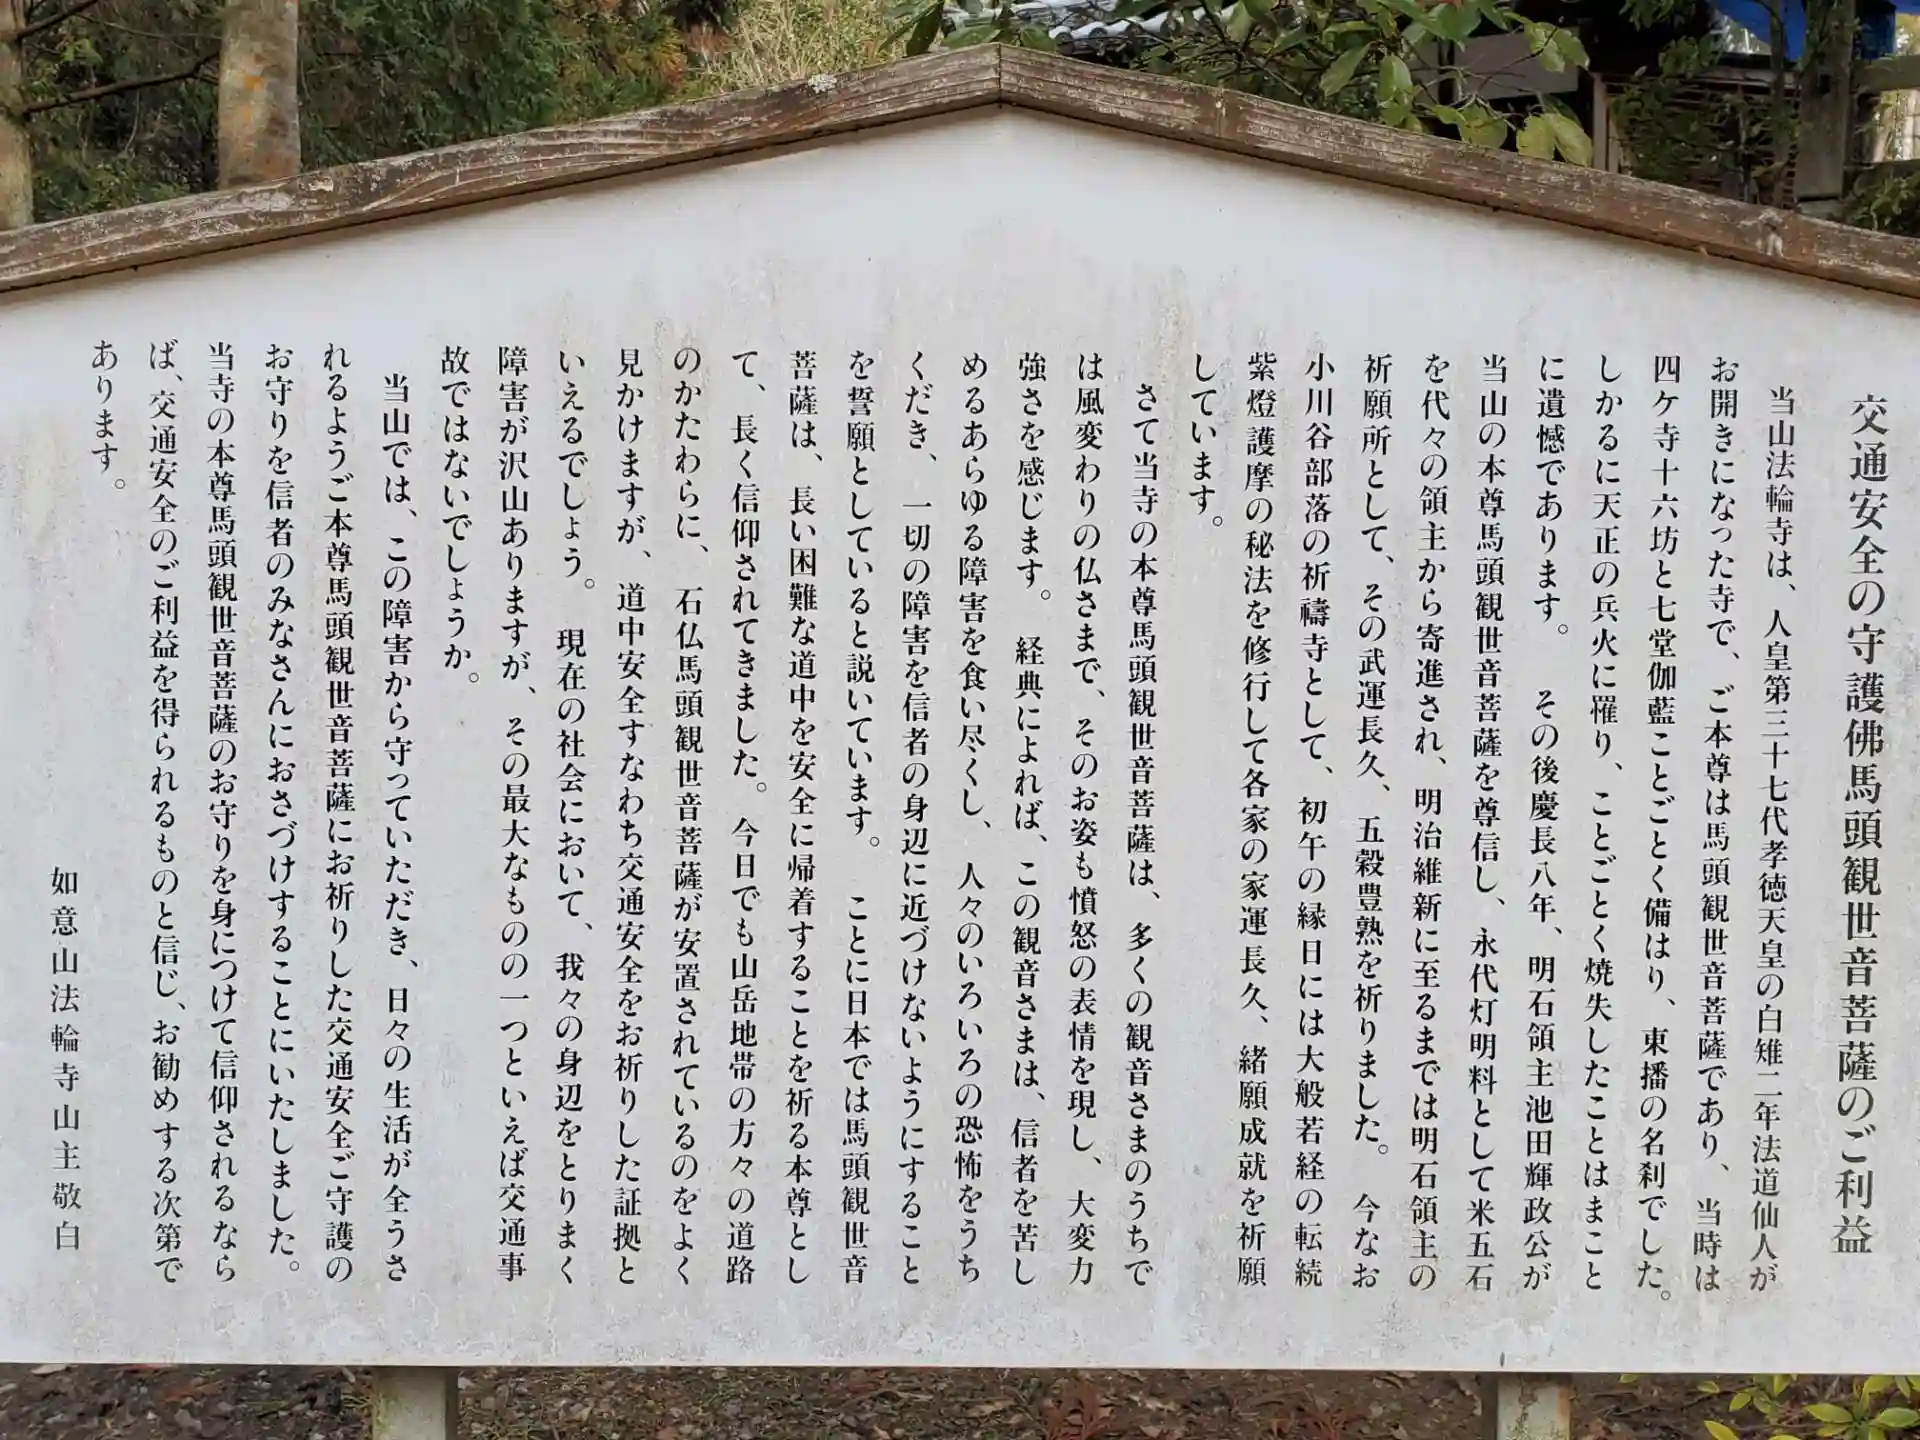 交通安全の守護佛馬頭観世音菩薩のご利益
当山法輪寺は、人皇第三十七代孝徳天皇の白雉二年法道仙人が
お開きになった寺で、ご本尊は馬頭観世音菩薩であり、当時は
四ケ寺十六坊と七堂伽藍ことごとく備はり、東播の名刹でした。
しかるに天正の兵火に罹り、ことごとく焼失したことはまこと
に遺憾であります。　その後慶長八年、明石領主池田輝政公が
当山の本尊馬頭観世音菩薩を尊信し、永代灯明料として米五石
を代々の領主から寄進され、明治維新に至るまでは明石領主の
祈願所として、その武運長久、五穀豊熟を祈りました。　今なお
小川谷部落の祈禱寺として、初午の縁日には大般若経の転続
紫燈護摩の秘法を修行して各家の家運長久、緒願成就を祈願
しています。
さて当寺の本尊馬頭観世音菩薩は、多くの観音さまのうちで
は風変わりの仏さまで、そのお姿も憤怒の表情を現し、大変力
強さを感じます。　経典によれば、この観音さまは、信者を苦し
めるあらゆる障害を食い尽くし、人々のいろいろの恐怖をうち
くだき、一切の障害を信者の身辺に近づけないようにすること
を誓願としていると説いています。　ことに日本では馬頭観世音
菩薩は、長い困難な道中を安全に帰着することを祈る本尊とし
て、長く信仰されてきました。今日でも山岳地帯の方々の道路
のかたわらに、石仏馬頭観世音菩薩が安置されているのをよく
見かけますが、道中安全すなわち交通安全をお祈りした証拠と
いえるでしょう。　現在の社会において、我々の身辺をとりまく
障害が沢山ありますが、その最大なものの一つといえば交通事
故ではないでしょうか。
当山では、この障害から守っていただき、日々の生活が全うさ
れるようご本尊馬頭観世音菩薩にお祈りした交通安全ご守護の
お守りを信者のみなさんにおさづけすることにいたしました。
当寺の本尊馬頭観世音菩薩のお守りを身につけて信仰されるなら
ば、交通安全のご利益を得られるものと信じ、お勧めする次第で
あります。
如意山法輪寺山主敬白